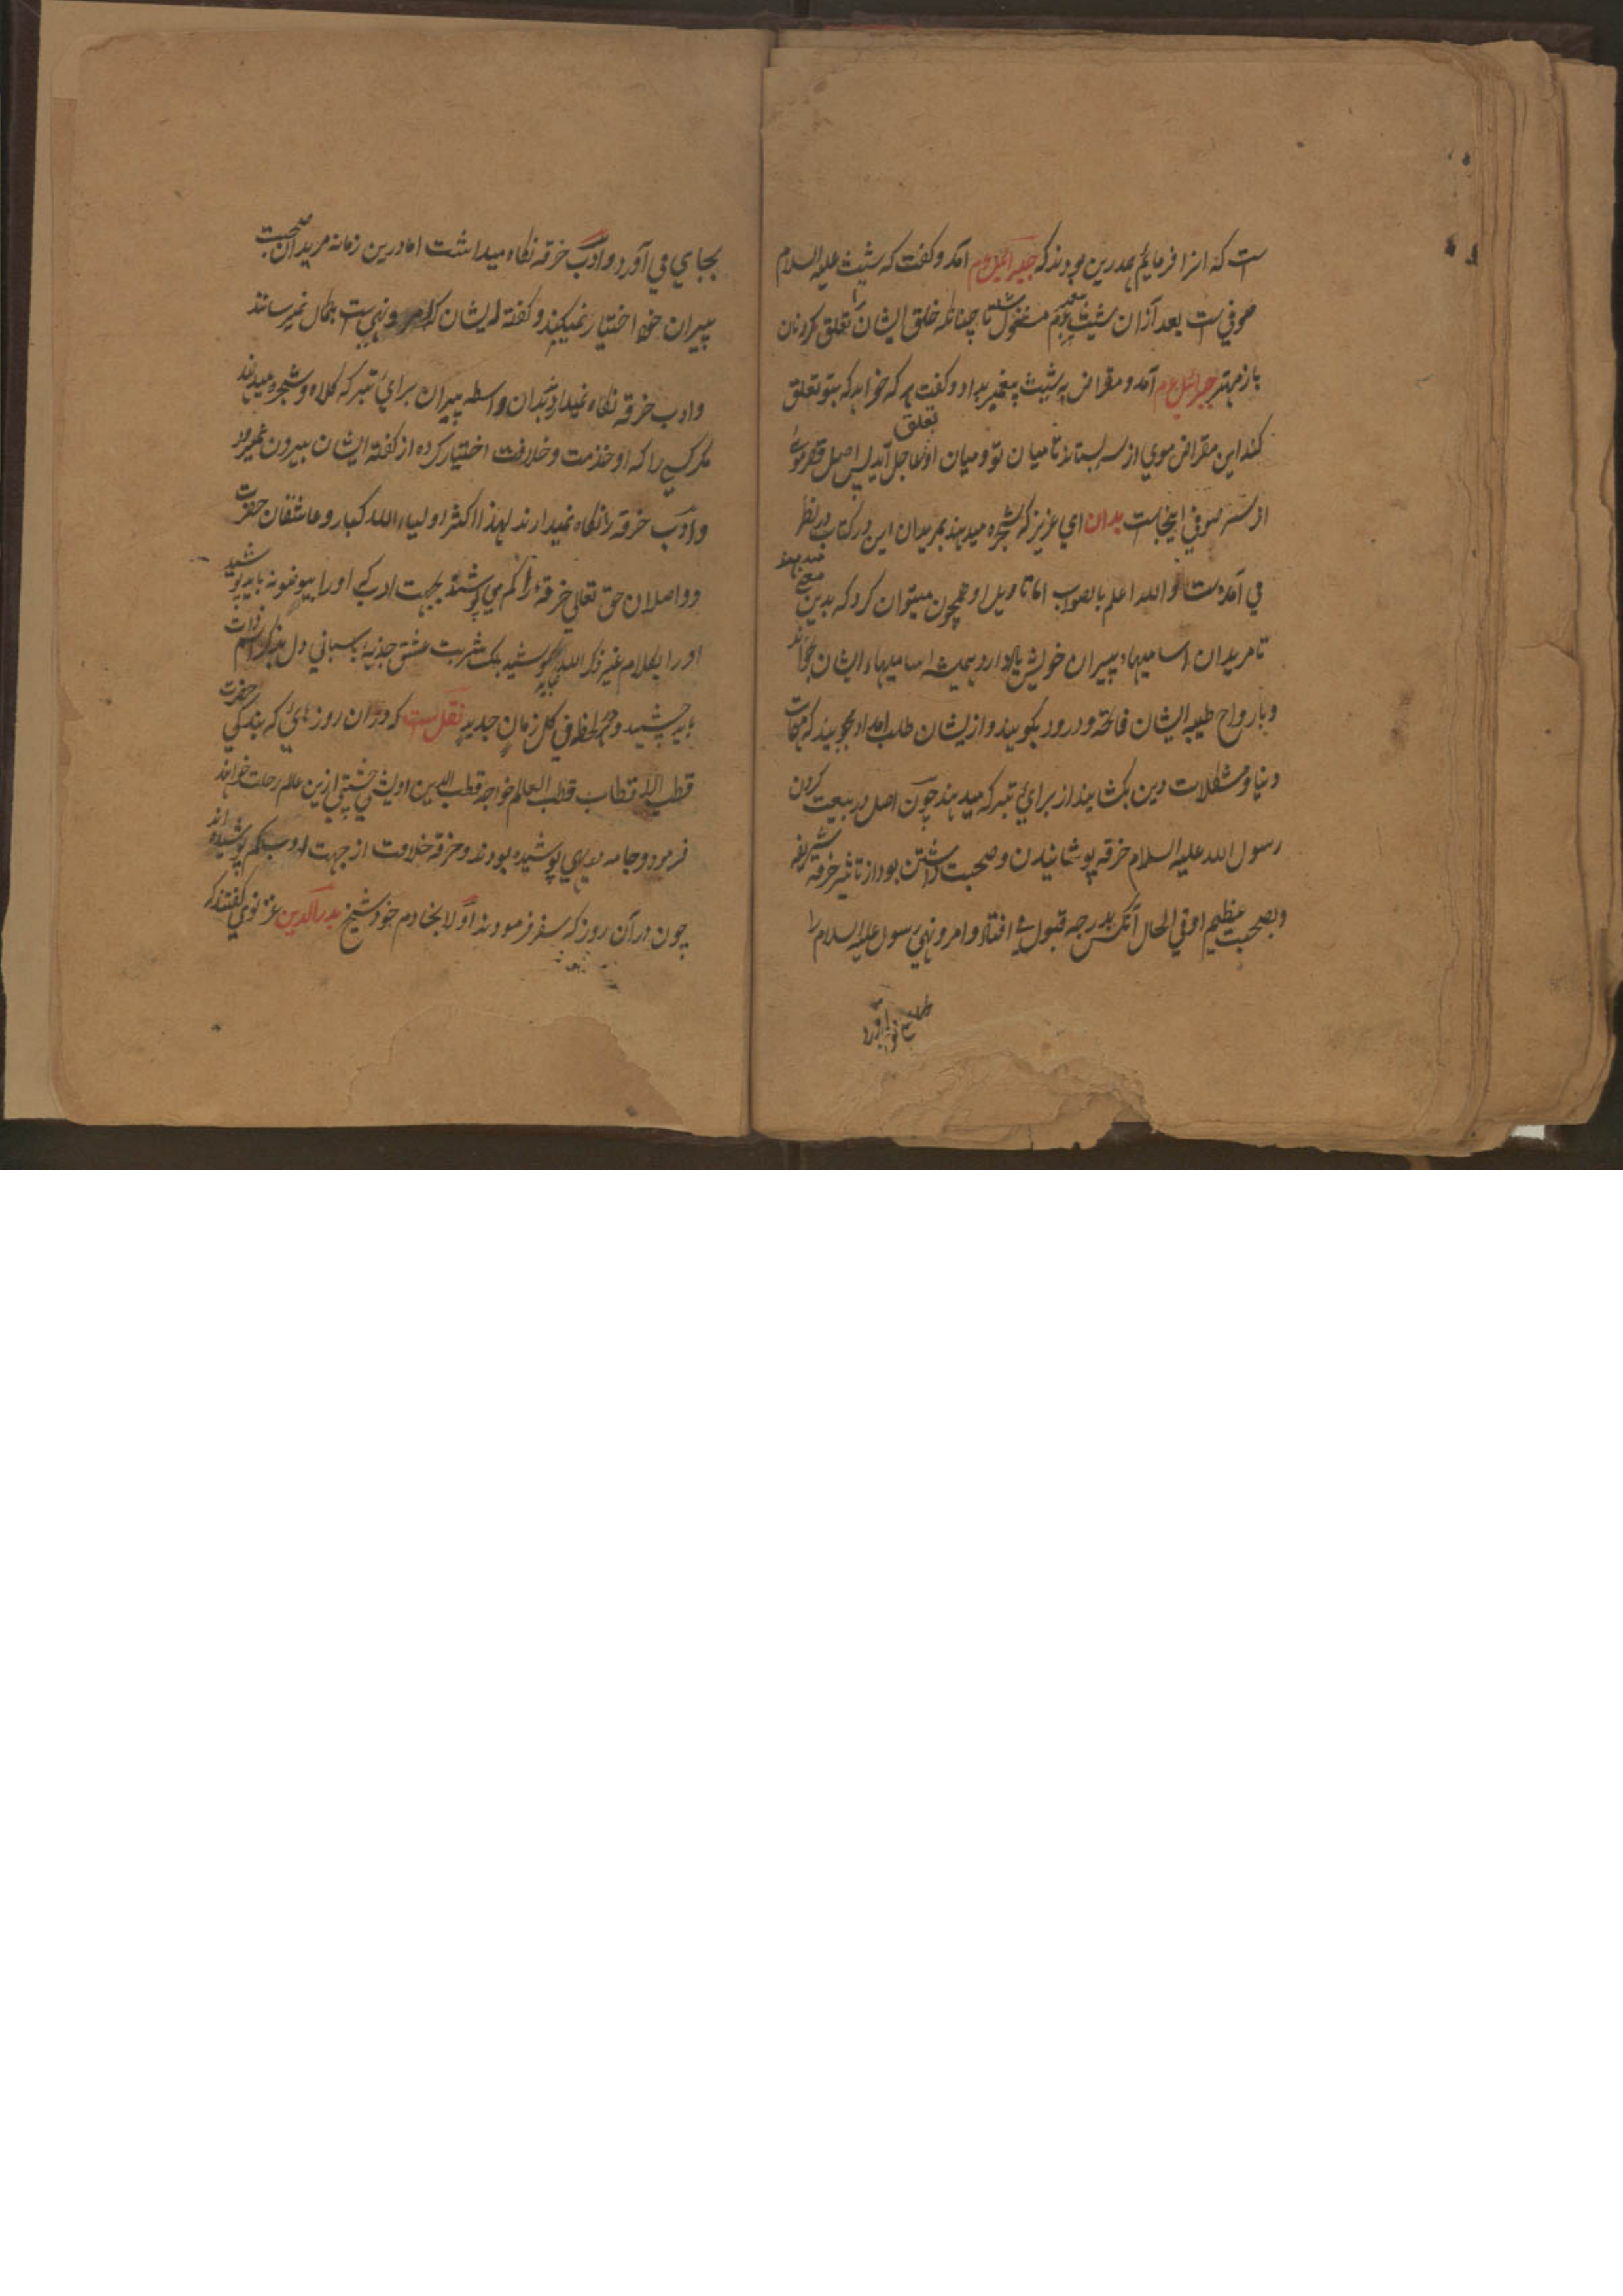 ست که انرا فرمایم همدرین بودند که جبرائیل عم آمد و کفت که شیث علیه السلام
صوفی ست بعد ازان شیث پیغمبر عم مشغول شد تا چنانکه خلق ایشان را تعلق کردنان
باز مهتر جبرائیل عم آمد و مقراض به شیث پیغمبر بداد و کفت هر که خواهد که بتو تعلق
کند این مقراض موی از سر بستان تا میان تو و میان او تعلق عاجل آید پس اصل
از سر صوفی اینجاست بدان ای عزیز که شجره میدهند بمریدان این در کتاب در نظر
نی آمده ست و الله اعلم بالصواب اما تاویل او همچون میتوان کرد که بدین معنی میدهند
تا مریدان اسامیهاء پیران خویش یاد دارد و همیشه اسامیهاء ایشان بخوانند
و بارواح طیبه ایشان فاتحه و درود بکویند و از ایشان طلب امداد بجویند که مهمات
دنیا و مشکلات دین بکشایند از برای تبرک میدهند چون اصل در بیعت کردن
رسول الله علیه السلام خرقه پوشانیدن و صحبت داشتن بود از تاثیر خرقه شریفه
و بصحبت عظیم او فی الحال آنکس بدرجه قبول می افتاد و امر و نهی رسول علیه السلام را
بجای می آورد و ادب خرقه نکاه میداشت اما درین زمانه مریدان صحبت
پیران خود اختیار نمیکنند و کفته ایشان که امر و نهی ست بکمال نمیرسانند
و ادب خرقه نکاه نمیدارند بدان واسطه پیران برای تبرک کلاه و شجره میدهند
مکر کسی را که او خدمت و خلافت اختیار کرده از کفته ایشان بیرون نمیرود
و ادب خرقه را نکاه میدارند لهذا اکثر اولیاء الله کبار و عاشقان حضرت
و واصلان حق تعالی خرقه را کم می پوشند بجهت ادب که او را بیوضو نه باید پوشید
او را بکلام غیر ذکر الله نکوشید یک شربت عشق جذبه پاسبانی دل
باید چشید و هر لحظه فی کل زمان جدید نقل ست که دران روزهای که بندکی حضرت
قطب الاقطاب قطب العالم خواجه قطب الدین اوشی چشتی ازین عالم رحلت خواهند
فرمود و جامه پوشیده بودند و خرقه خلافت از جهت ادب کم پوشیده اند
چون در آن روز که سفر فرمودند اولا بخادم خود شیخ بدر الدین غزنوی کفتند که